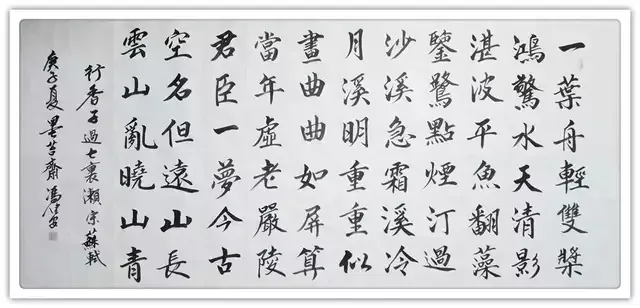 一葉舟輕雙槳
鴻驚水天清影
湛波平魚翻藻
鑒鷺點煙汀過
沙溪急霜溪冷
月溪明重重似
畫曲曲如屏算
當年虛老嚴陵
君臣一夢今古
空名但遠山長
雲山亂曉山青
行香子過七裏瀨宋蘇軾
庚子夏墨苔齋馮